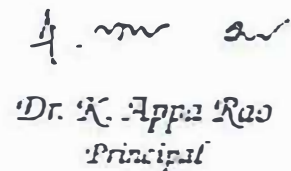 Dr. K. Appa Rao
Principal